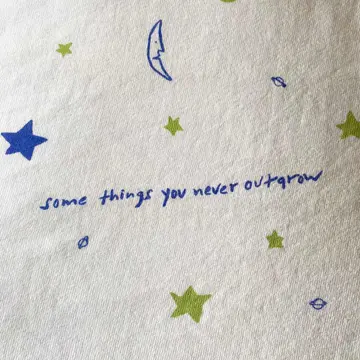 some things you never outgrow